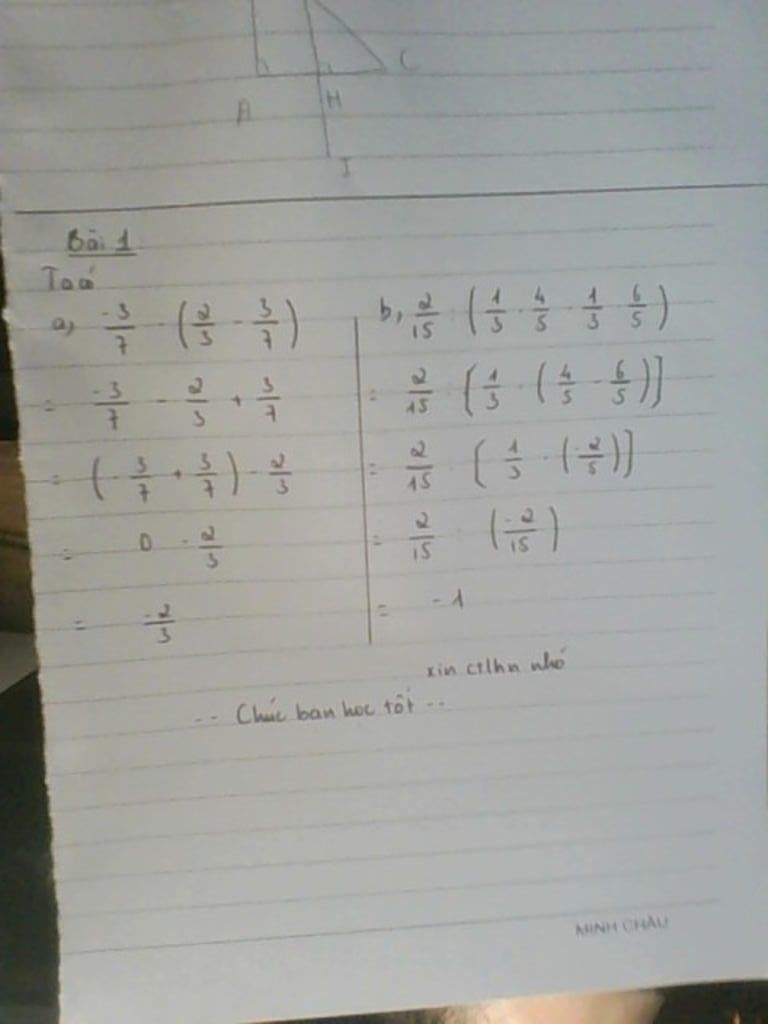 A
H
C
I
Bài 1
Ta có
a, -3/7 - (2/3 - 3/7)
= -3/7 - 2/3 + 3/7
= (-3/7 + 3/7) - 2/3
= 0 - 2/3
= -2/3
b, 2/15 : (1/3 . 4/5 - 1/3 . 6/5)
= 2/15 : [1/3 . (4/5 - 6/5)]
= 2/15 : [1/3 . (-2/5)]
= 2/15 : (-2/15)
= -1
xin ctlhn nhó
-- Chúc bạn học tốt --
MINH CHÂU